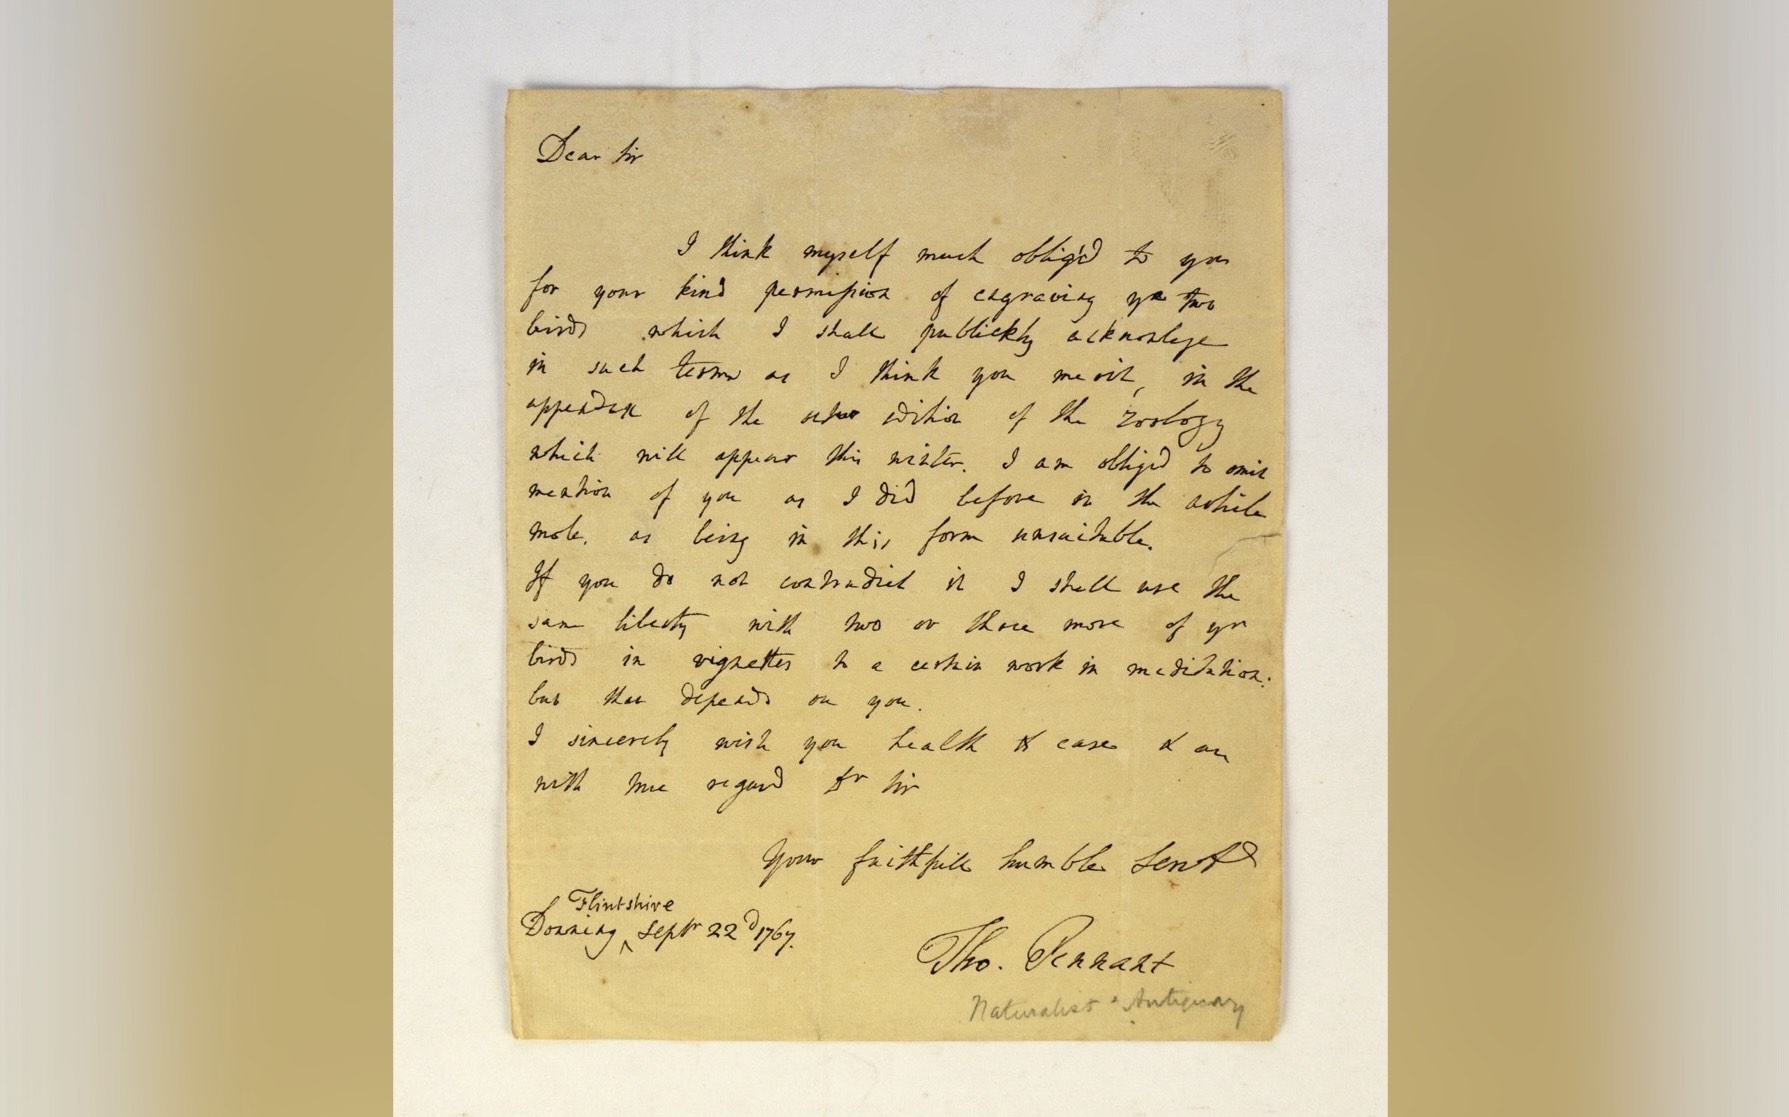 Dear Sir
I think myself much oblig'd to you
for your kind permission of engraving yr two
birds which I shall publickly acknowlege
in such terms as I think you merit, in the
appendix of the edition of the zoology
which will appear this winter. I am oblig'd to omit
mention of you as I did before in the white
mole. as being in this form unsuitable.
If you do not contradict it I shall use the
same liberty with two or three more of yr
birds in vignettes to a certain work in meditation:
but that depends on you.
I sincerely wish you health & ease & am
with true regard Dr Sir
Your faithfull humble Servt
Flintshire
Downing ^ Septr 22d 1767.
Tho. Pennant
Naturalist & Antiquary